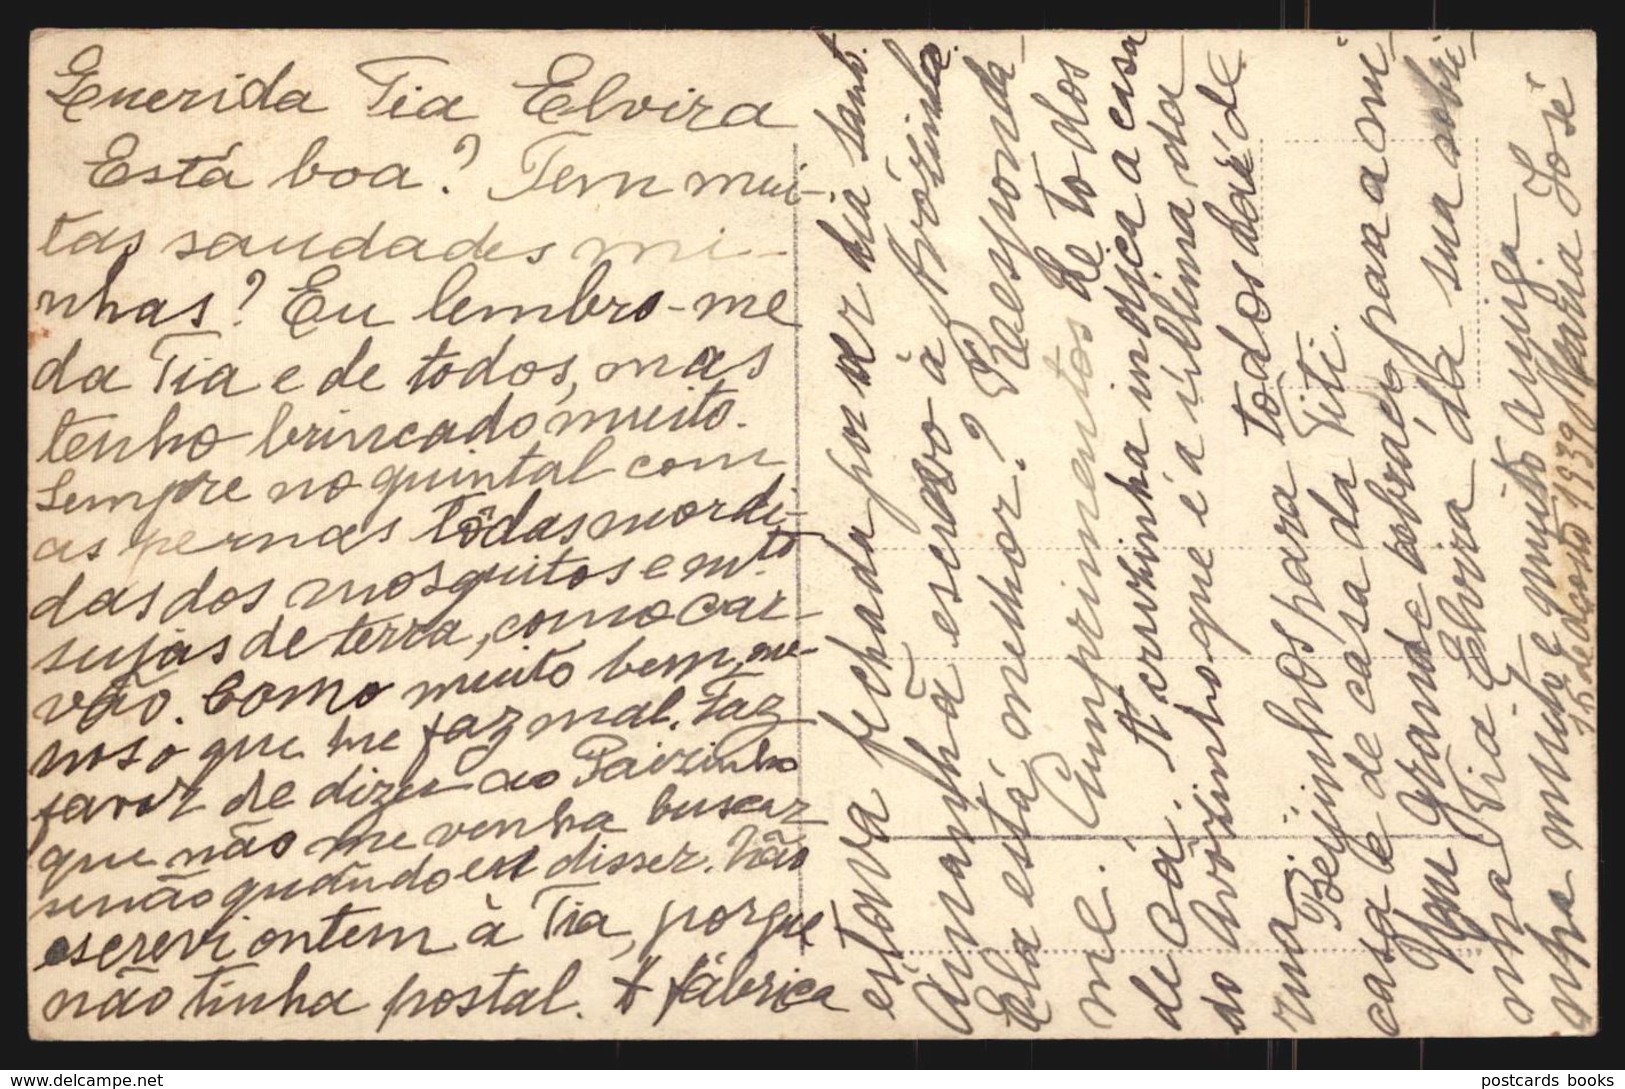 Querida Tia Elvira
Está boa? Tem mui-
tas saudades mi-
nhas? Eu lembro-me
da Tia e de todos, mas
tenho brincado muito.
Sempre no quintal com
as pernas tôdas mordi-
das dos mosquitos e mto
sujas de terra, como car-
vão. Como muito bem, me-
nos o que me faz mal. Faz
favor de dizer ao Paizinho
que não me venha buscar
senão quando eu disser. Não
escrevi ontem à Tia, porque
não tinha postal. A fábrica
estava fechada por ser dia santo.
Amanhã escrevo à Avózinha.
Ela está milhor? Responda-
me. Cumprimentos de todos
de cá. A cruzinha indica a casa
do Avôzinho que é a última da
rua. Beijinhos para todos daí de
casa e de casa da Titi.
Um grande abraço para a mi-
nha Tia Elvira da sua sobri-
nha muito e muito amiga
Maria José
15 de Agosto 1939
postcards books